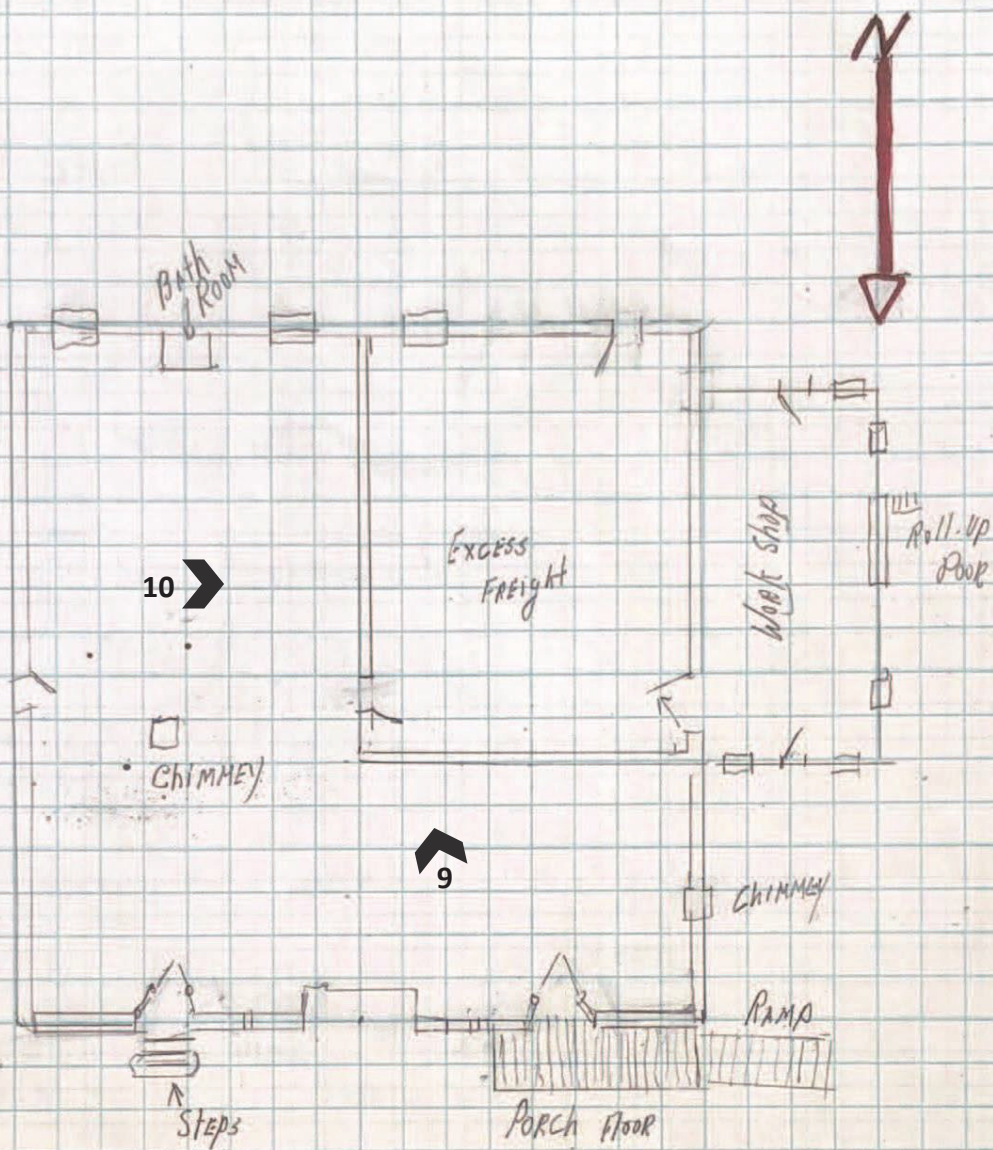 N
Bath
Room
Excess
Freight
Work Shop
Roll-up
Door
10
Chimmey
9
Chimmey
Ramp
Steps
Porch Floor